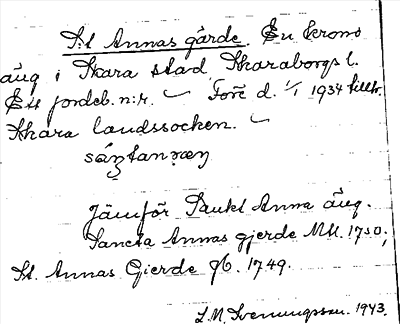 S:t Annas gärde. En krono
äng i Skara stad Skaraborgs l.
Ett jordeb. n:r. Före d. 1/1 1934 tillh.
Skara landssocken.
Jämför Sankt Anna äng.
Sancta Annas gjerde Mtl. 1750;
St. Annas Gierde Jb. 1749.
L.M. Svenungsson. 1943.